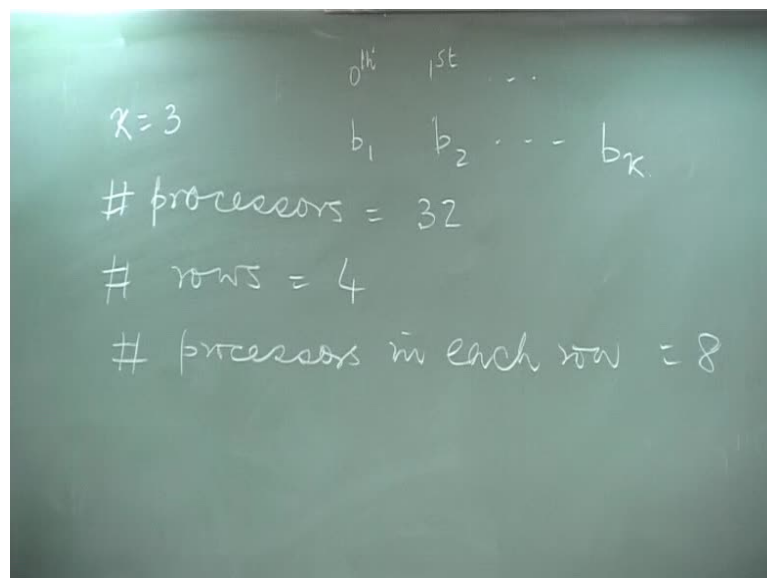 0th 1st ...
K = 3
b1 b2 ... bK
# processors = 32
# rows = 4
# processors in each row = 8